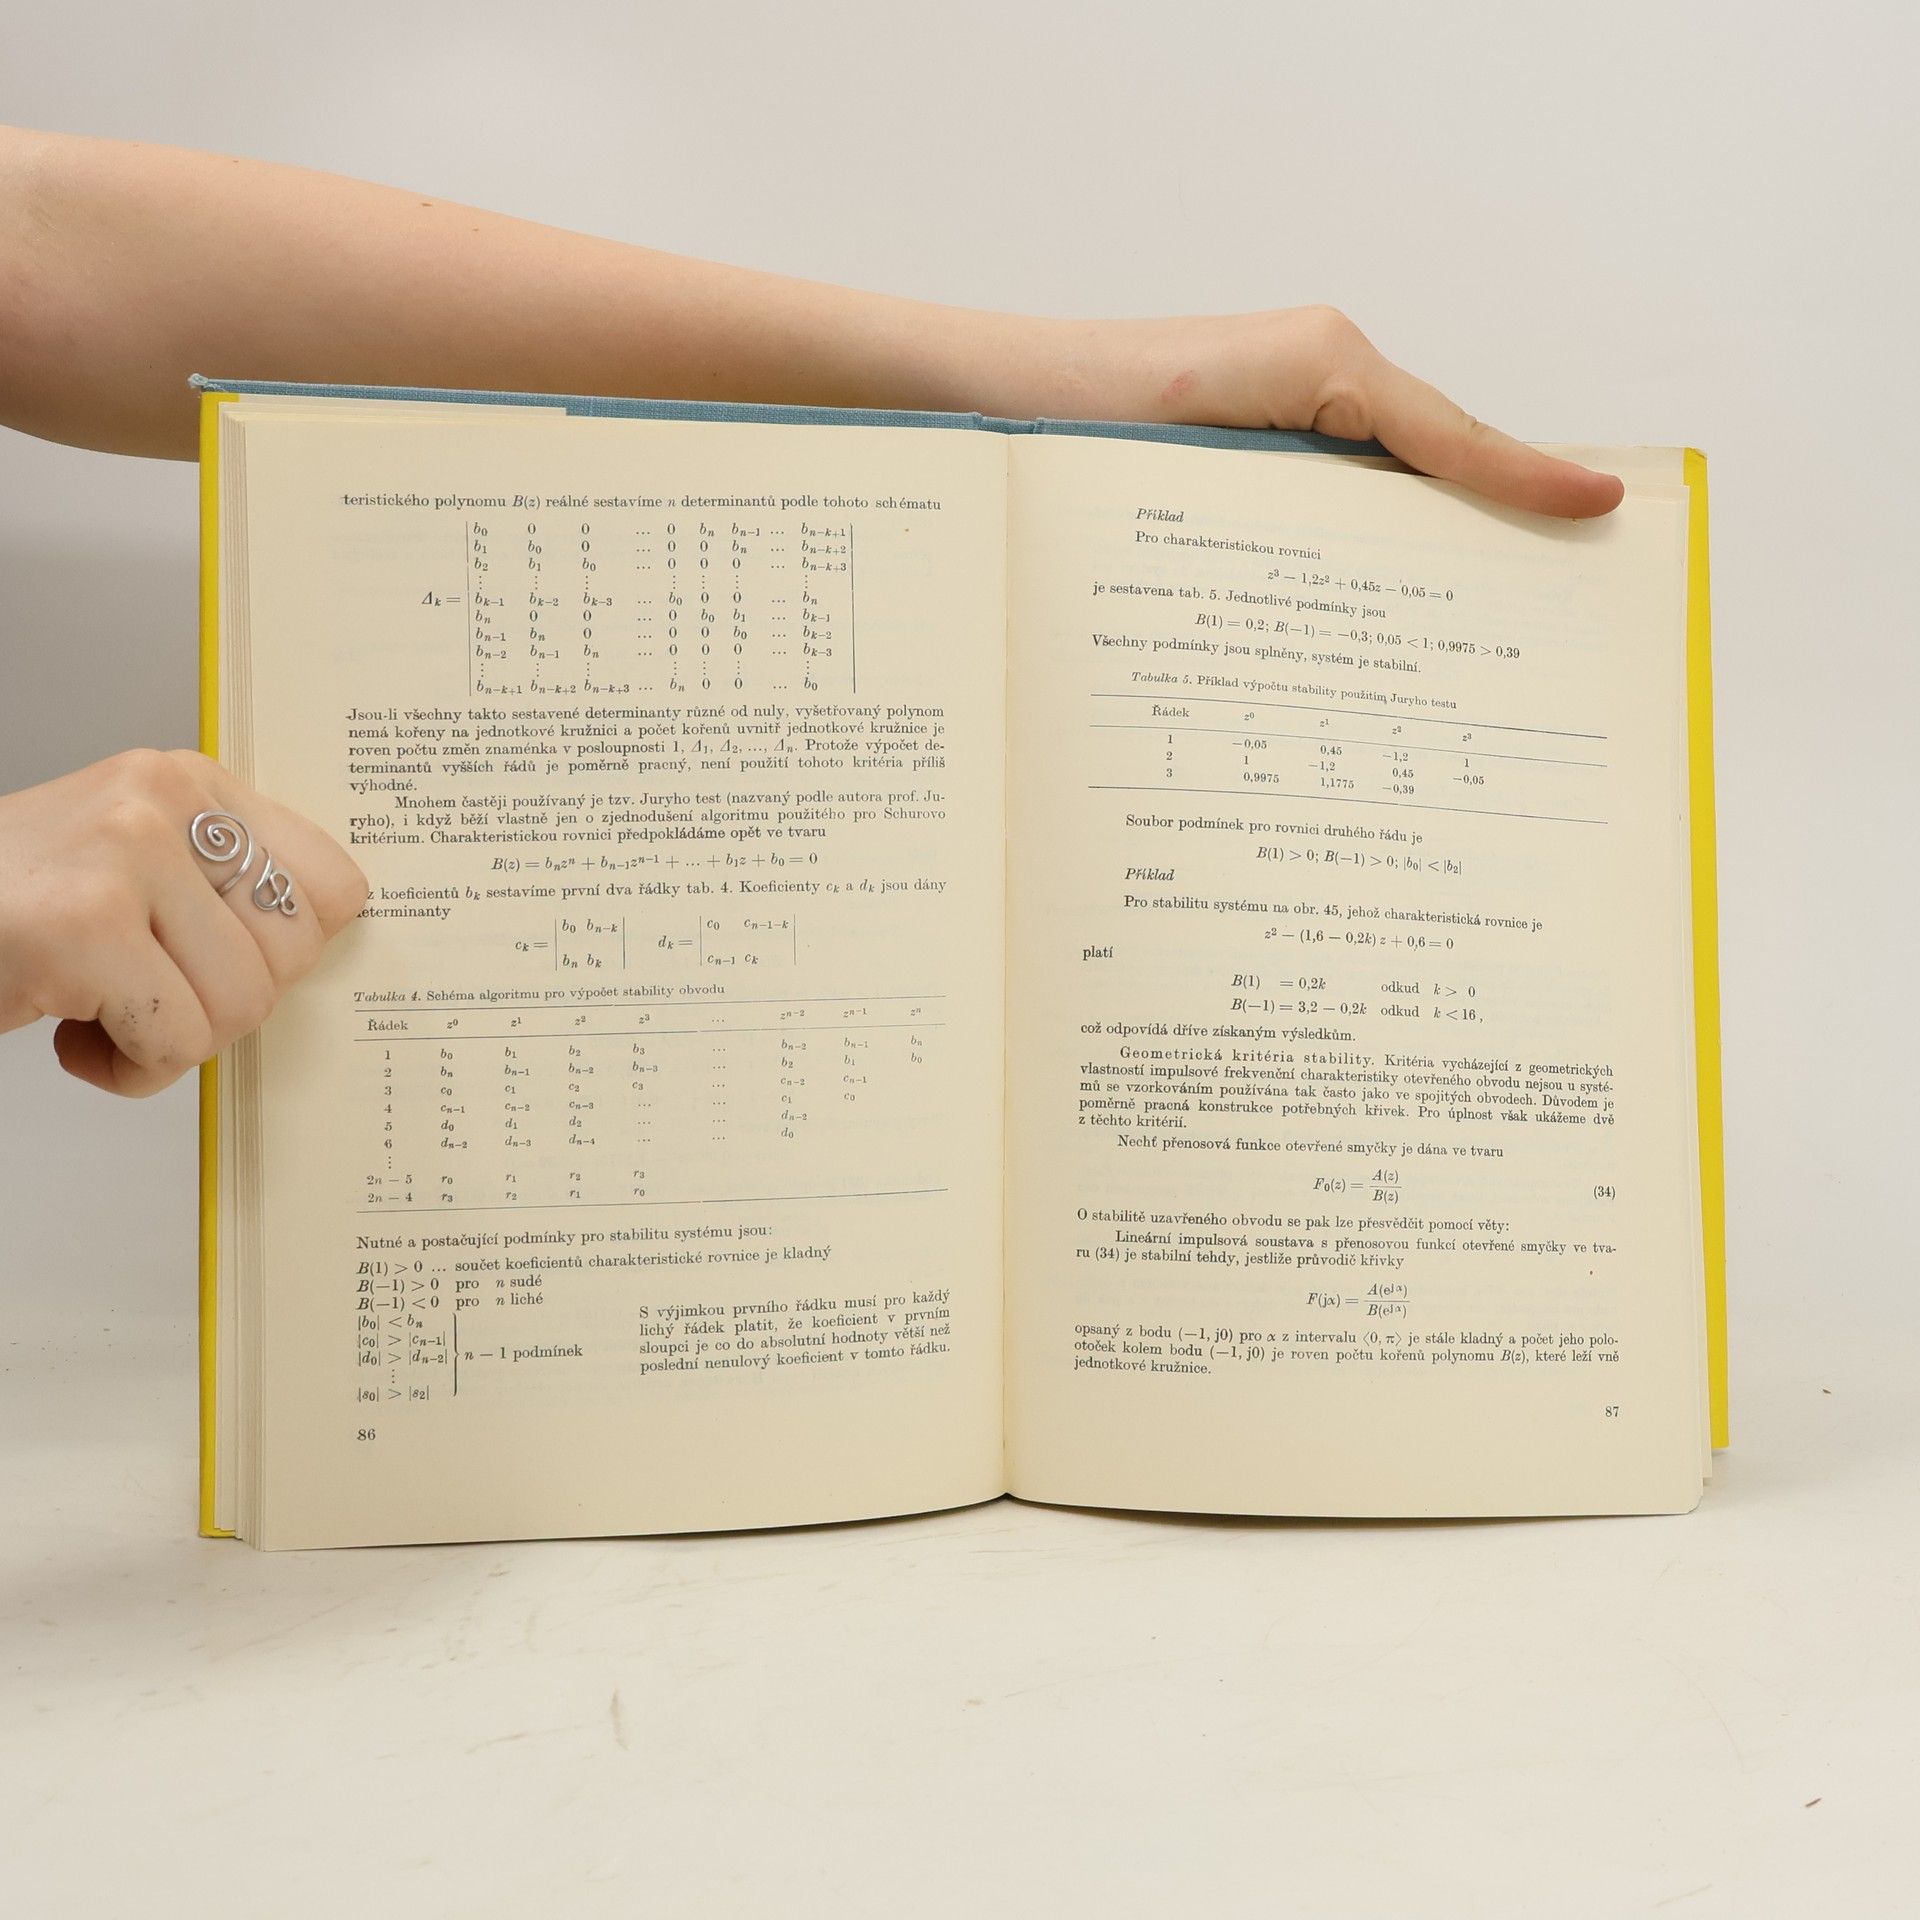 teristického polynomu B(z) reálné sestavíme n determinantů podle tohoto schématu
b0 0 0 ... 0 bn bn−1 ... bn−k+1
b1 b0 0 ... 0 0 bn ... bn−k+2
b2 b1 b0 ... 0 0 0 ... bn−k+3
⋮ ⋮ ⋮ ⋮ ⋮ ⋮ ⋮
Δk = bk−1 bk−2 bk−3 ... b0 0 0 ... bn
bn 0 0 ... 0 b0 b1 ... bk−1
bn−1 bn 0 ... 0 0 b0 ... bk−2
bn−2 bn−1 bn ... 0 0 0 ... bk−3
⋮ ⋮ ⋮ ⋮ ⋮ ⋮ ⋮
bn−k+1 bn−k+2 bn−k+3 ... bn 0 0 ... b0
Jsou-li všechny takto sestavené determinanty různé od nuly, vyšetřovaný polynom
nemá kořeny na jednotkové kružnici a počet kořenů uvnitř jednotkové kružnice je
roven počtu změn znaménka v posloupnosti 1, Δ1, Δ2, ..., Δn. Protože výpočet de-
terminantů vyšších řádů je poměrně pracný, není použití tohoto kritéria příliš
výhodné.
Mnohem častěji používaný je tzv. Juryho test (nazvaný podle autora prof. Ju-
ryho), i když běží vlastně jen o zjednodušení algoritmu použitého pro Schurovo
kritérium. Charakteristickou rovnici předpokládáme opět ve tvaru
B(z) = bnzⁿ + bn−1zⁿ⁻¹ + ... + b1z + b0 = 0
z koeficientů bk sestavíme první dva řádky tab. 4. Koeficienty ck a dk jsou dány
eterminanty
ck = | b0 bn−k | dk = | c0 cn−1−k |
| bn bk | | cn−1 ck |
Tabulka 4. Schéma algoritmu pro výpočet stability obvodu
Řádek z⁰ z¹ z² z³ ... zⁿ⁻² zⁿ⁻¹ zⁿ
1 b0 b1 b2 b3 ... bn−2 bn−1 bn
2 bn bn−1 bn−2 bn−3 ... b2 b1 b0
3 c0 c1 c2 c3 ... cn−2 cn−1
4 cn−1 cn−2 cn−3 ... ... c1 c0
5 d0 d1 d2 ... ... dn−2
6 dn−2 dn−3 dn−4 ... ... d0
⋮
2n − 5 r0 r1 r2 r3
2n − 4 r3 r2 r1 r0
Nutné a postačující podmínky pro stabilitu systému jsou:
B(1) > 0 ... součet koeficientů charakteristické rovnice je kladný
B(−1) > 0 pro n sudé
B(−1) < 0 pro n liché
|b0| < bn
|c0| > |cn−1|
|d0| > |dn−2| n − 1 podmínek
⋮
|s0| > |s2|
S výjimkou prvního řádku musí pro každý
lichý řádek platit, že koeficient v prvním
sloupci je co do absolutní hodnoty větší než
poslední nenulový koeficient v tomto řádku.
86
Příklad
Pro charakteristickou rovnici
z³ − 1,2z² + 0,45z − 0,05 = 0
je sestavena tab. 5. Jednotlivé podmínky jsou
B(1) = 0,2; B(−1) = −0,3; 0,05 < 1; 0,9975 > 0,39
Všechny podmínky jsou splněny, systém je stabilní.
Tabulka 5. Příklad výpočtu stability použitím Juryho testu
Řádek z⁰ z¹ z² z³
1 −0,05 0,45 −1,2 1
2 1 −1,2 0,45 −0,05
3 0,9975 1,1775 −0,39
Soubor podmínek pro rovnici druhého řádu je
B(1) > 0; B(−1) > 0; |b0| < |b2|
Příklad
Pro stabilitu systému na obr. 45, jehož charakteristická rovnice je
z² − (1,6 − 0,2k) z + 0,6 = 0
platí
B(1) = 0,2k odkud k > 0
B(−1) = 3,2 − 0,2k odkud k < 16,
což odpovídá dříve získaným výsledkům.
Geometrická kritéria stability. Kritéria vycházející z geometrických
vlastností impulsové frekvenční charakteristiky otevřeného obvodu nejsou u systé-
mů se vzorkováním používána tak často jako ve spojitých obvodech. Důvodem je
poměrně pracná konstrukce potřebných křivek. Pro úplnost však ukážeme dvě
z těchto kritérií.
Nechť přenosová funkce otevřené smyčky je dána ve tvaru
F0(z) = A(z)/B(z) (34)
O stabilitě uzavřeného obvodu se pak lze přesvědčit pomocí věty:
Lineární impulsová soustava s přenosovou funkcí otevřené smyčky ve tva-
ru (34) je stabilní tehdy, jestliže průvodič křivky
F(jα) = A(e^jα)/B(e^jα)
opsaný z bodu (−1, j0) pro α z intervalu ⟨0, π⟩ je stále kladný a počet jeho polo-
otoček kolem bodu (−1, j0) je roven počtu kořenů polynomu B(z), které leží vně
jednotkové kružnice.
87